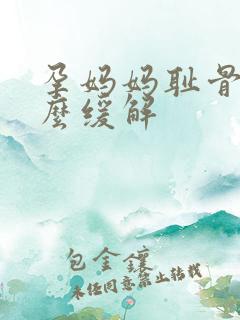 孕妈妈耻骨
麽缓解
包金镶
未经同意禁止转载